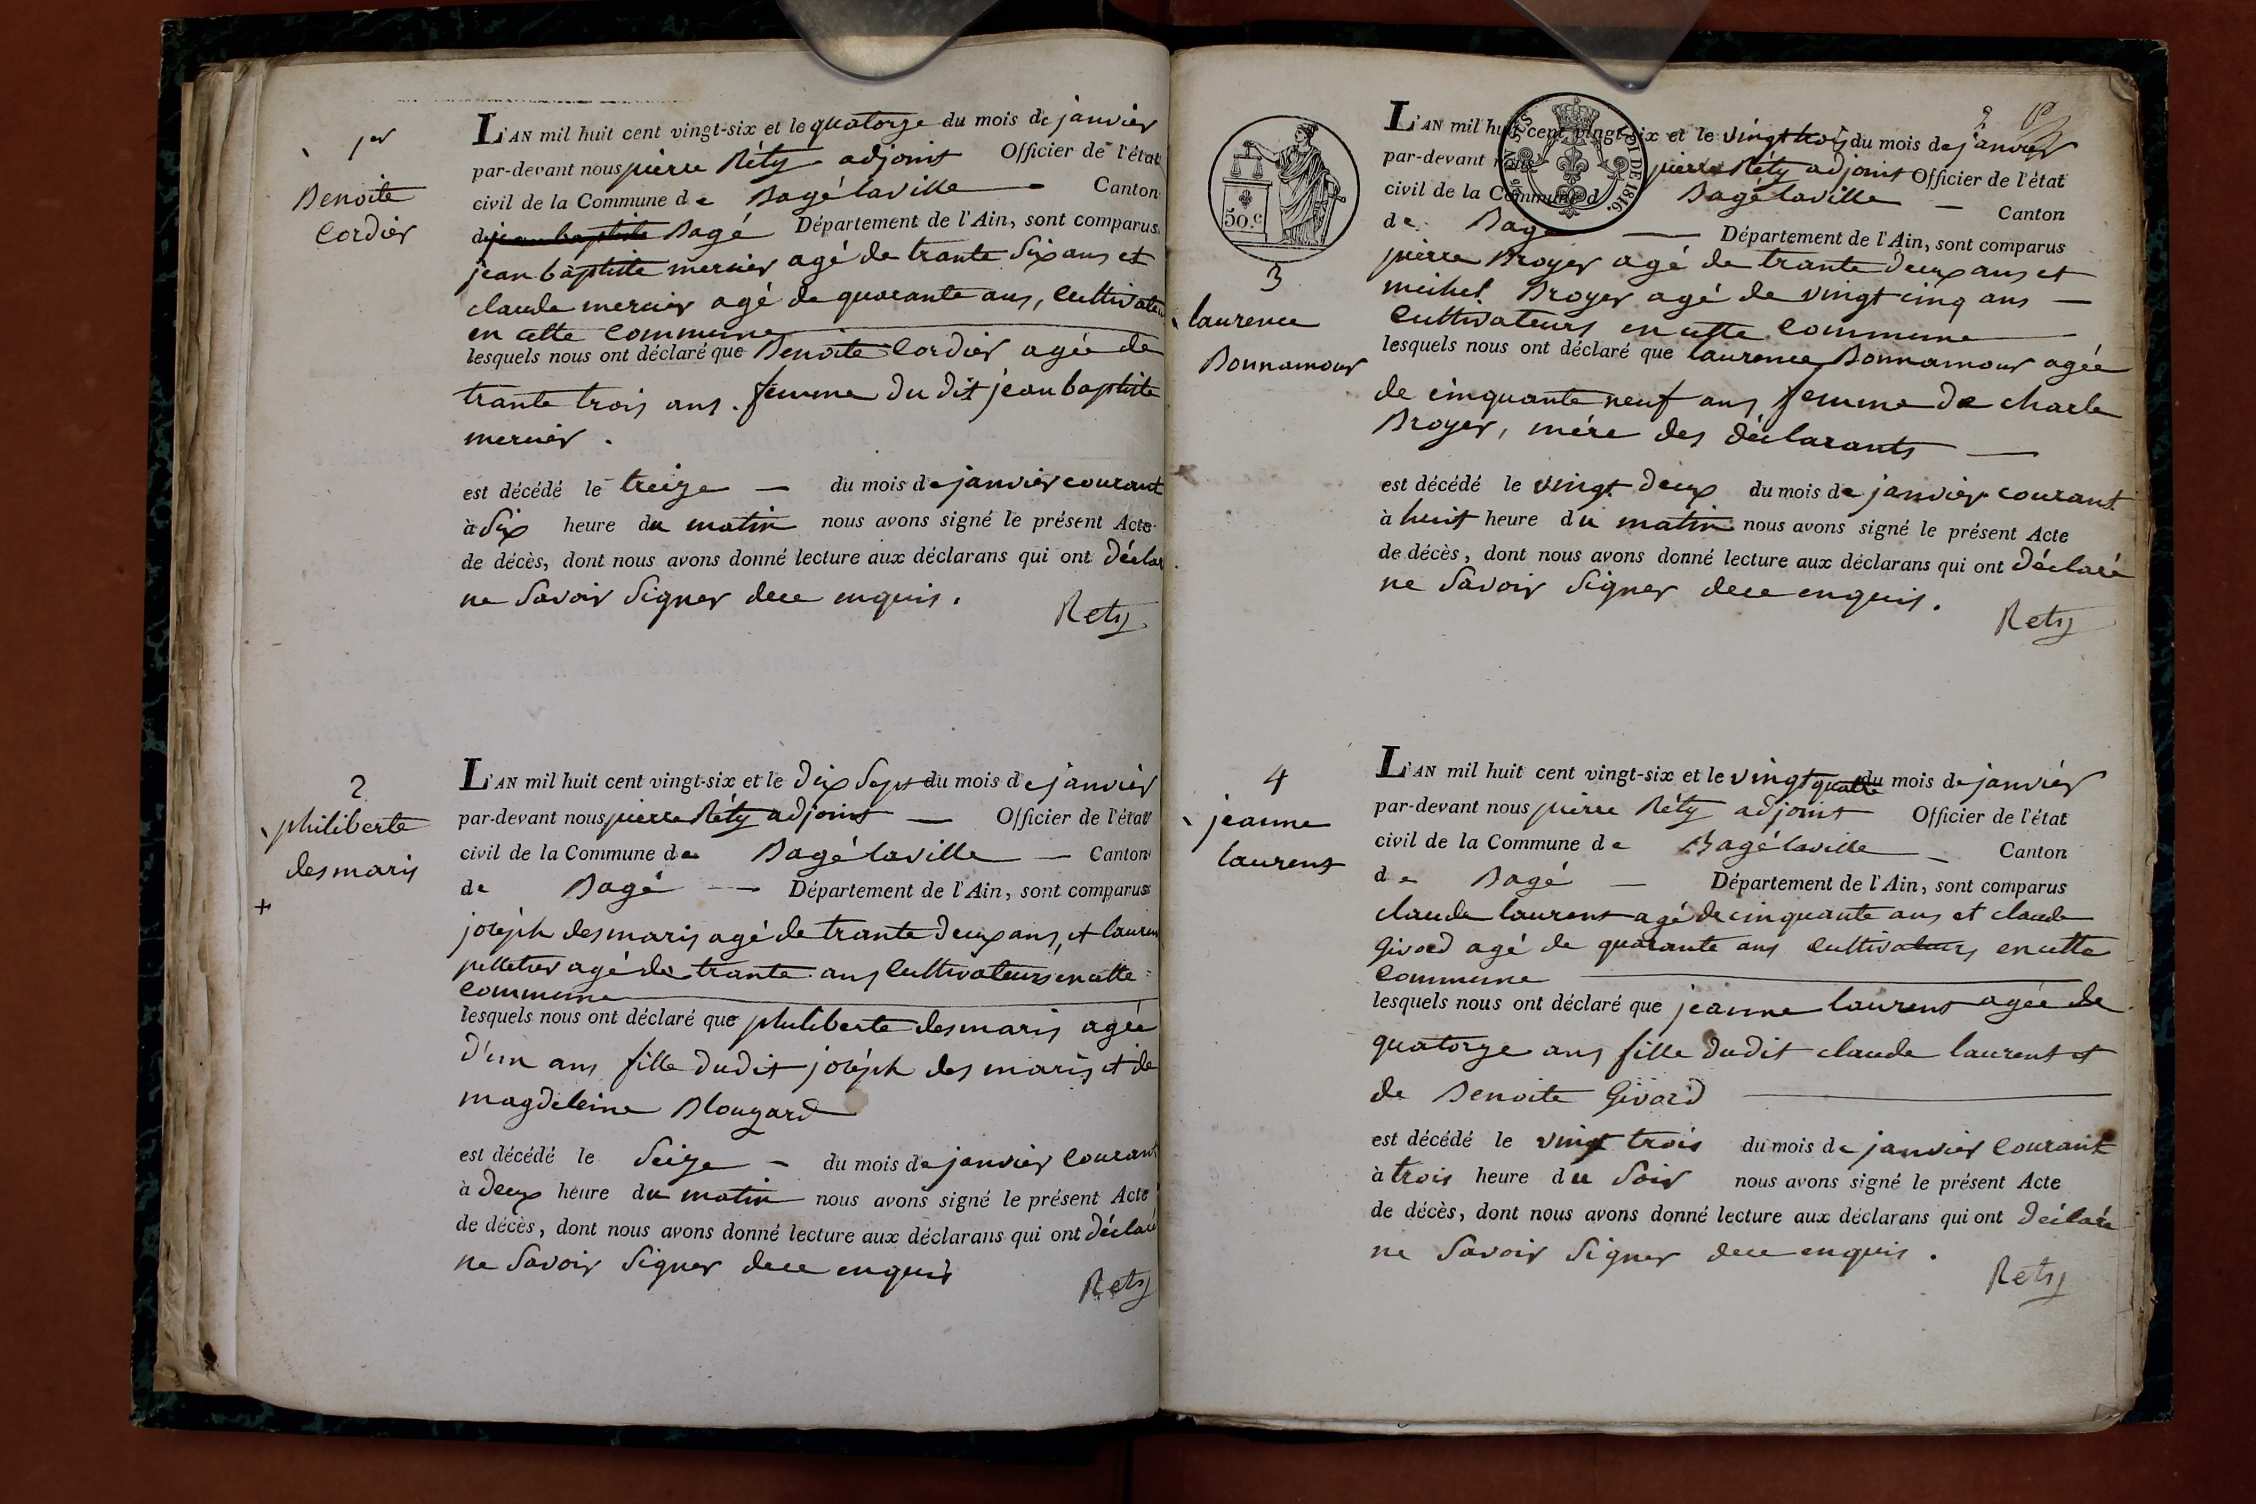 1er
Benoite
Cordier
L'AN mil huit cent vingt-six et le quatorze du mois de janvier
par-devant nous pierre Réty adjoint Officier de l'état
civil de la Commune de Bagé laville Canton
de jean baptiste Bagé Département de l'Ain, sont comparus
jean baptiste mercier agé de trante six ans et
claude mercier agé de quarante ans, cultivateu
en cette commune
lesquels nous ont déclaré que Benoite Cordier agée de
trante trois ans. femme du dit jean baptiste
mercier.
est décédé le treize — du mois de janvier courant
à six heure du matin nous avons signé le présent Acte
de décès, dont nous avons donné lecture aux déclarans qui ont déclar
ne savoir signer de ce enquis.
Rety
2
philiberte
desmaris
+
L'AN mil huit cent vingt-six et le dix sept du mois de janvier
par-devant nous pierre Réty adjoint — Officier de l'état
civil de la Commune de Bagé laville — Canton
de Bagé — Département de l'Ain, sont comparus
joséph desmaris agé de trante deux ans, et laurin
pelletier agé de trante ans cultivateurs en cette
commune
lesquels nous ont déclaré que philiberte desmaris agée
d'un ans fille dudit joséph desmaris et de
magdeleine Blougard
est décédé le seize — du mois de janvier courant
à deux heure du matin nous avons signé le présent Acte
de décès, dont nous avons donné lecture aux déclarans qui ont déclaré
ne savoir signer de ce enquis
Rety
2
50.c
LOI DE 1816.
3
laurence
Bonnamour
L'AN mil huit cent vingt-six et le vingt trois du mois de janvier
par-devant nous pierre Réty adjoint Officier de l'état
civil de la Commune d Bagé laville — Canton
de Bagé — Département de l'Ain, sont comparus
pierre Broyer agé de trante deux ans et
michel Broyer agé de vingt cinq ans —
cultivateurs en cette commune
lesquels nous ont déclaré que laurence Bonnamour agée
de cinquante neuf ans femme de charle
Broyer, mére des déclarants —
est décédé le vingt deux du mois de janvier courant
à huit heure du matin nous avons signé le présent Acte
de décès, dont nous avons donné lecture aux déclarans qui ont déclaré
ne savoir signer de ce enquis.
Rety
4
jeanne
laurent
L'AN mil huit cent vingt-six et le vingt quatre du mois de janvier
par-devant nous pierre Réty adjoint Officier de l'état
civil de la Commune de Bagé laville — Canton
de Bagé — Département de l'Ain, sont comparus
claude laurent agé de cinquante ans et claude
Givord agé de quarante ans cultivateurs en cette
commune
lesquels nous ont déclaré que jeanne laurent agée de
quatorze ans fille dudit claude laurent et
de Benoite Givord
est décédé le vingt trois du mois de janvier courant
à trois heure du soir nous avons signé le présent Acte
de décès, dont nous avons donné lecture aux déclarans qui ont déclaré
ne savoir signer de ce enquis.
Rety